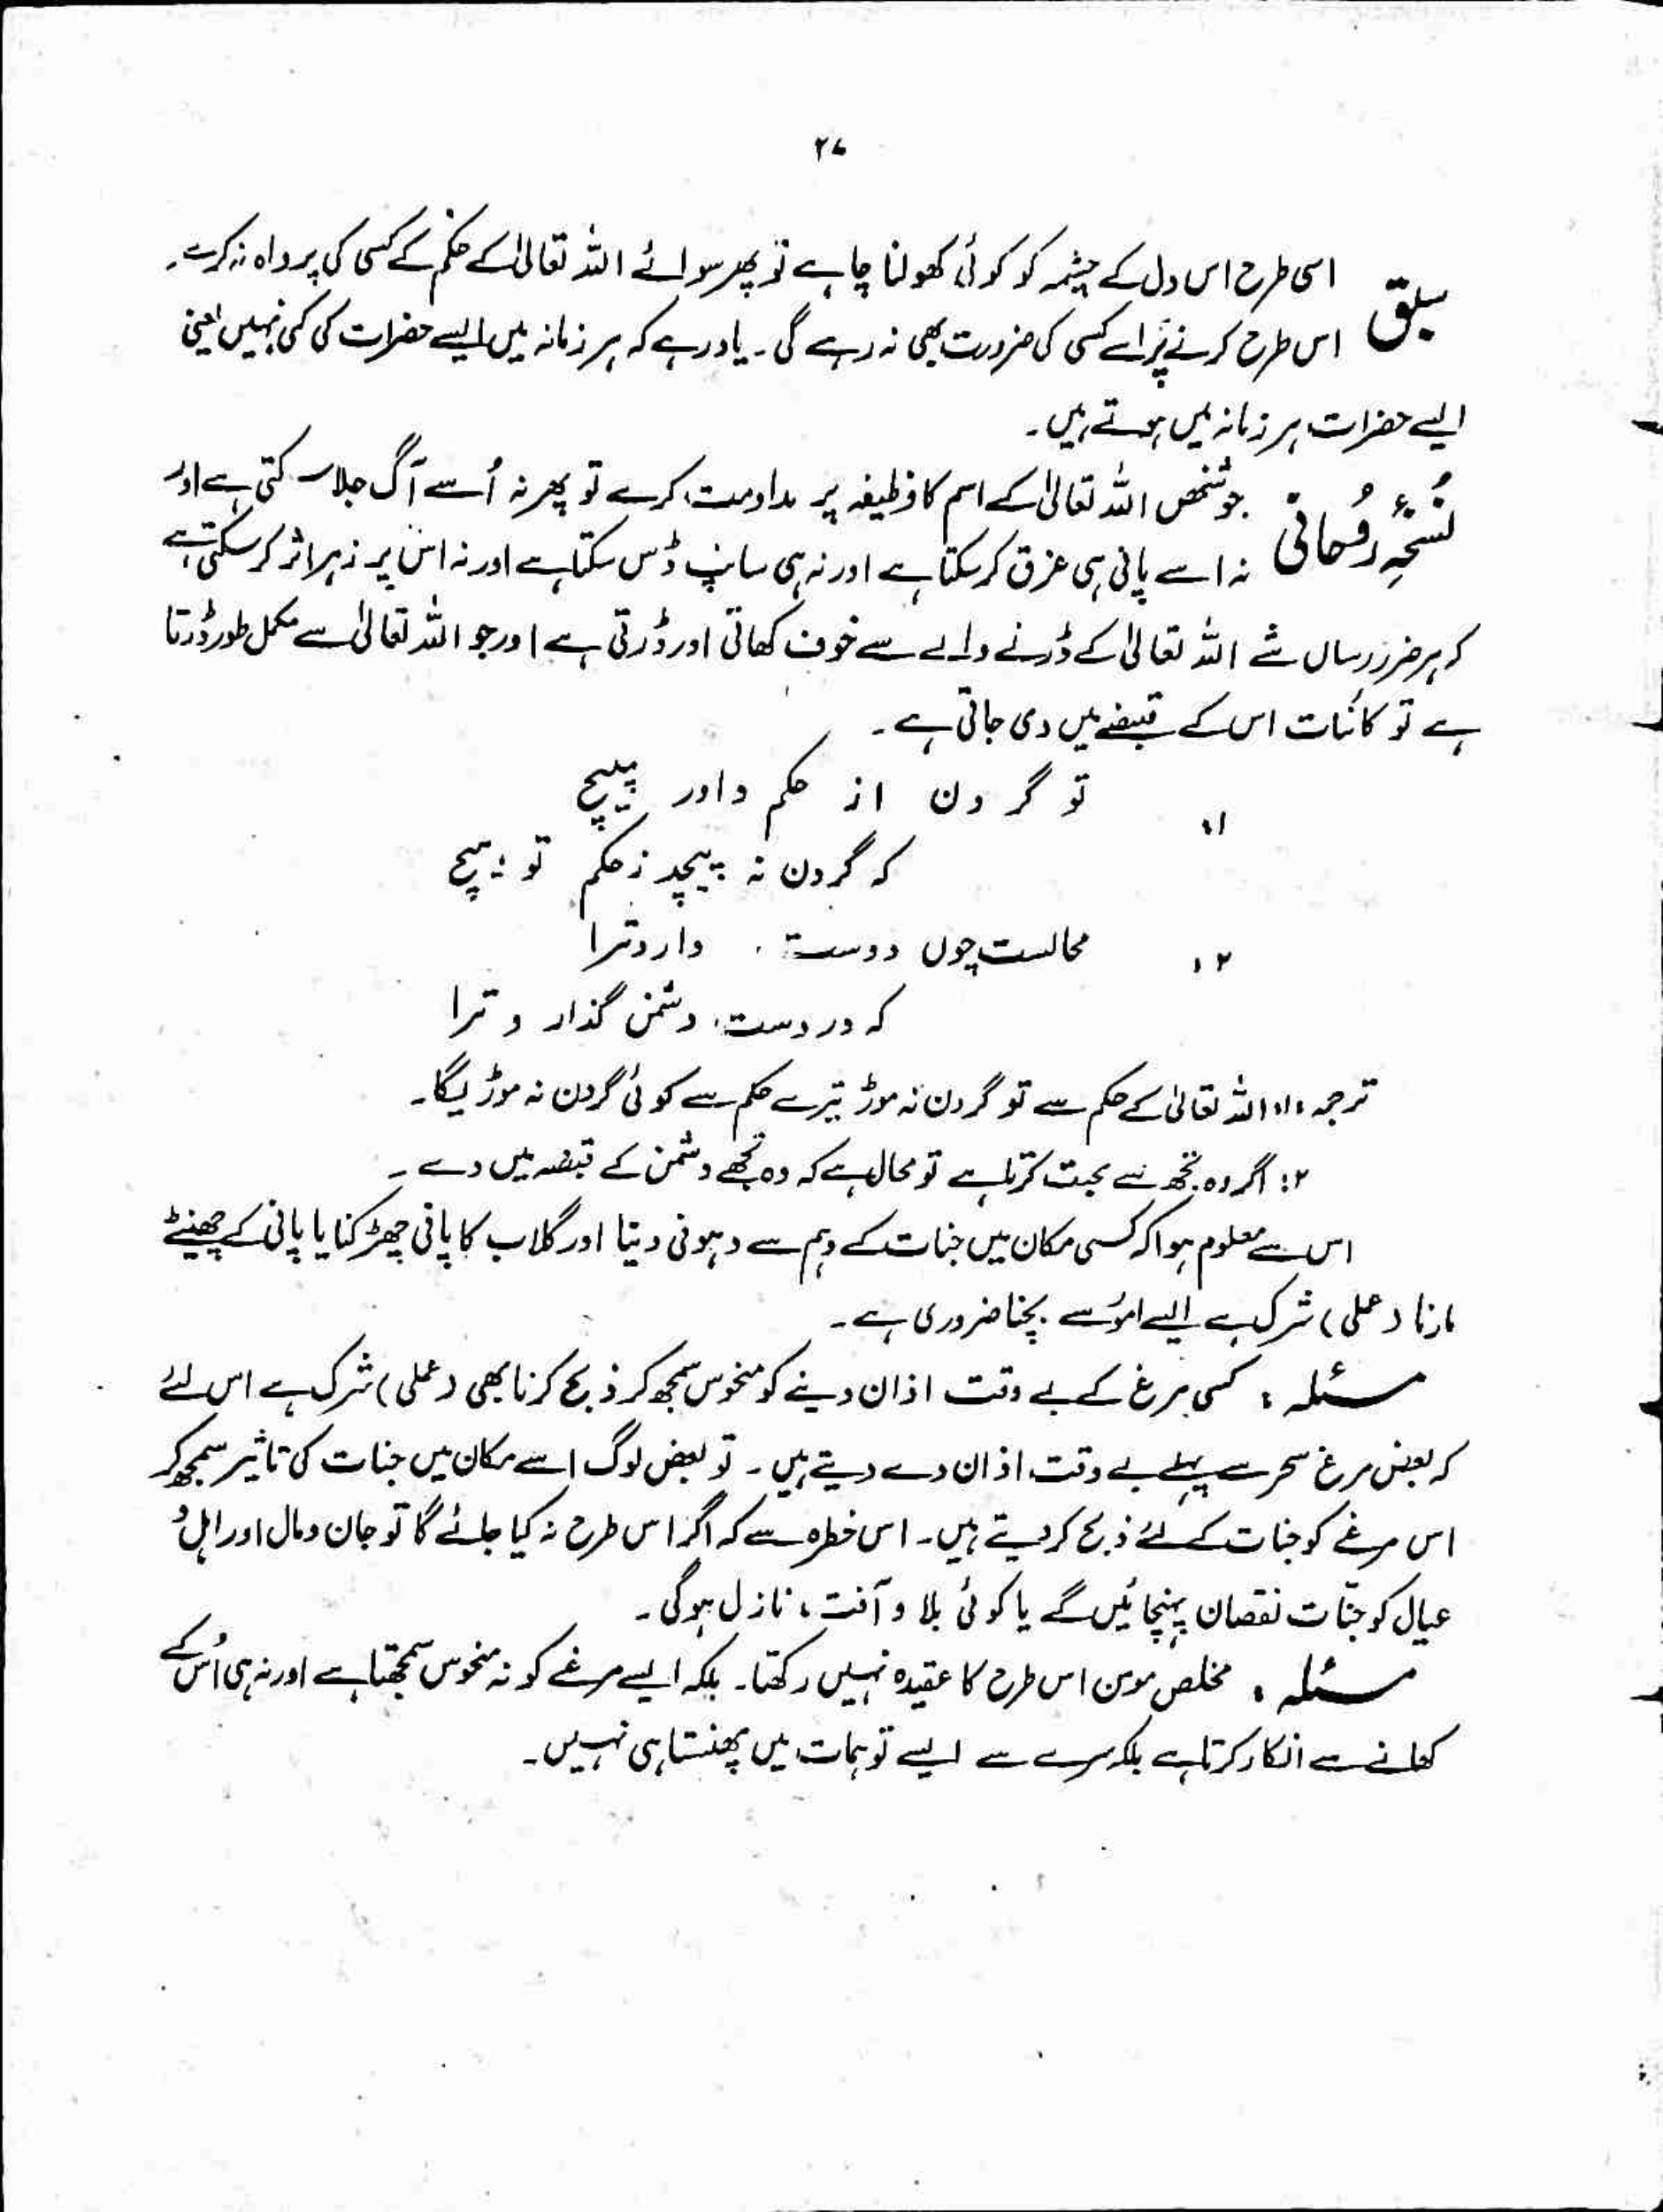 ۲۷
سبق اسی طرح اس دل کے چشمہ کو کوئی کھولنا چاہے تو پھر سوائے اللہ تعالیٰ کے حکم کے کسی کی پرواہ نہ کرے۔
اس طرح کرنے پر اسے کسی کی ضرورت بھی نہ رہے گی۔ یاد رہے کہ ہر زمانہ میں ایسے حضرات کی کمی نہیں یعنی
ایسے حضرات ہر زمانہ میں ہوتے ہیں۔
نُسخۂ رُوحانی جو شخص اللہ تعالیٰ کے اسم کا وظیفہ پر مداومت کرے تو پھر نہ اُسے آگ جلا سکتی ہے اور
نہ اسے پانی ہی غرق کر سکتا ہے اور نہ ہی سانپ ڈس سکتا ہے اور نہ اس پر زہر اثر کر سکتی ہے
کہ ہر ضرر رساں شے اللہ تعالیٰ کے ڈرنے والے سے خوف کھاتی اور ڈرتی ہے اور جو اللہ تعالیٰ سے مکمل طور ڈرتا
ہے تو کائنات اس کے قبضے میں دی جاتی ہے۔
۱۔ تو گردن از حکم داور مپیچ
کہ گردن نہ پیچد ز حکم تو ہیچ
۲۔ محالست چوں دوست دارد ترا
کہ در دست دشمن گذارد ترا
ترجمہ (۱) اللہ تعالیٰ کے حکم سے تو گردن نہ موڑ تیرے حکم سے کوئی گردن نہ موڑیگا۔
۲: اگر وہ تجھ سے محبت کرتا ہے تو محال ہے کہ وہ تجھے دشمن کے قبضہ میں دے۔
اس سے معلوم ہوا کہ کسی مکان میں جنات کے وہم سے دہونی دینا اور گلاب کا پانی چھڑکنا یا پانی کے چھینٹے
مارنا (عملی) شرک ہے ایسے امور سے بچنا ضروری ہے۔
مسئلہ: کسی مرغ کے بے وقت اذان دینے کو منحوس سمجھ کر ذبح کرنا بھی (عملی) شرک ہے اس لئے
کہ بعض مرغ سحر سے پہلے بے وقت اذان دے دیتے ہیں۔ تو بعض لوگ اسے مکان میں جنات کی تاثیر سمجھ کر
اس مرغے کو جنات کے لئے ذبح کر دیتے ہیں۔ اس خطرہ سے کہ اگر اس طرح نہ کیا جائے گا تو جان و مال اور اہل و
عیال کو جنّات نقصان پہنچائیں گے یا کوئی بلا و آفت، نازل ہوگی۔
مسئلہ: مخلص مومن اس طرح کا عقیدہ نہیں رکھتا۔ بلکہ ایسے مرغے کو نہ منحوس سمجھتا ہے اور نہ ہی اُس کے
کھانے سے انکار کرتا ہے بلکہ سرے سے ایسے توہمات میں پھنستا ہی نہیں۔